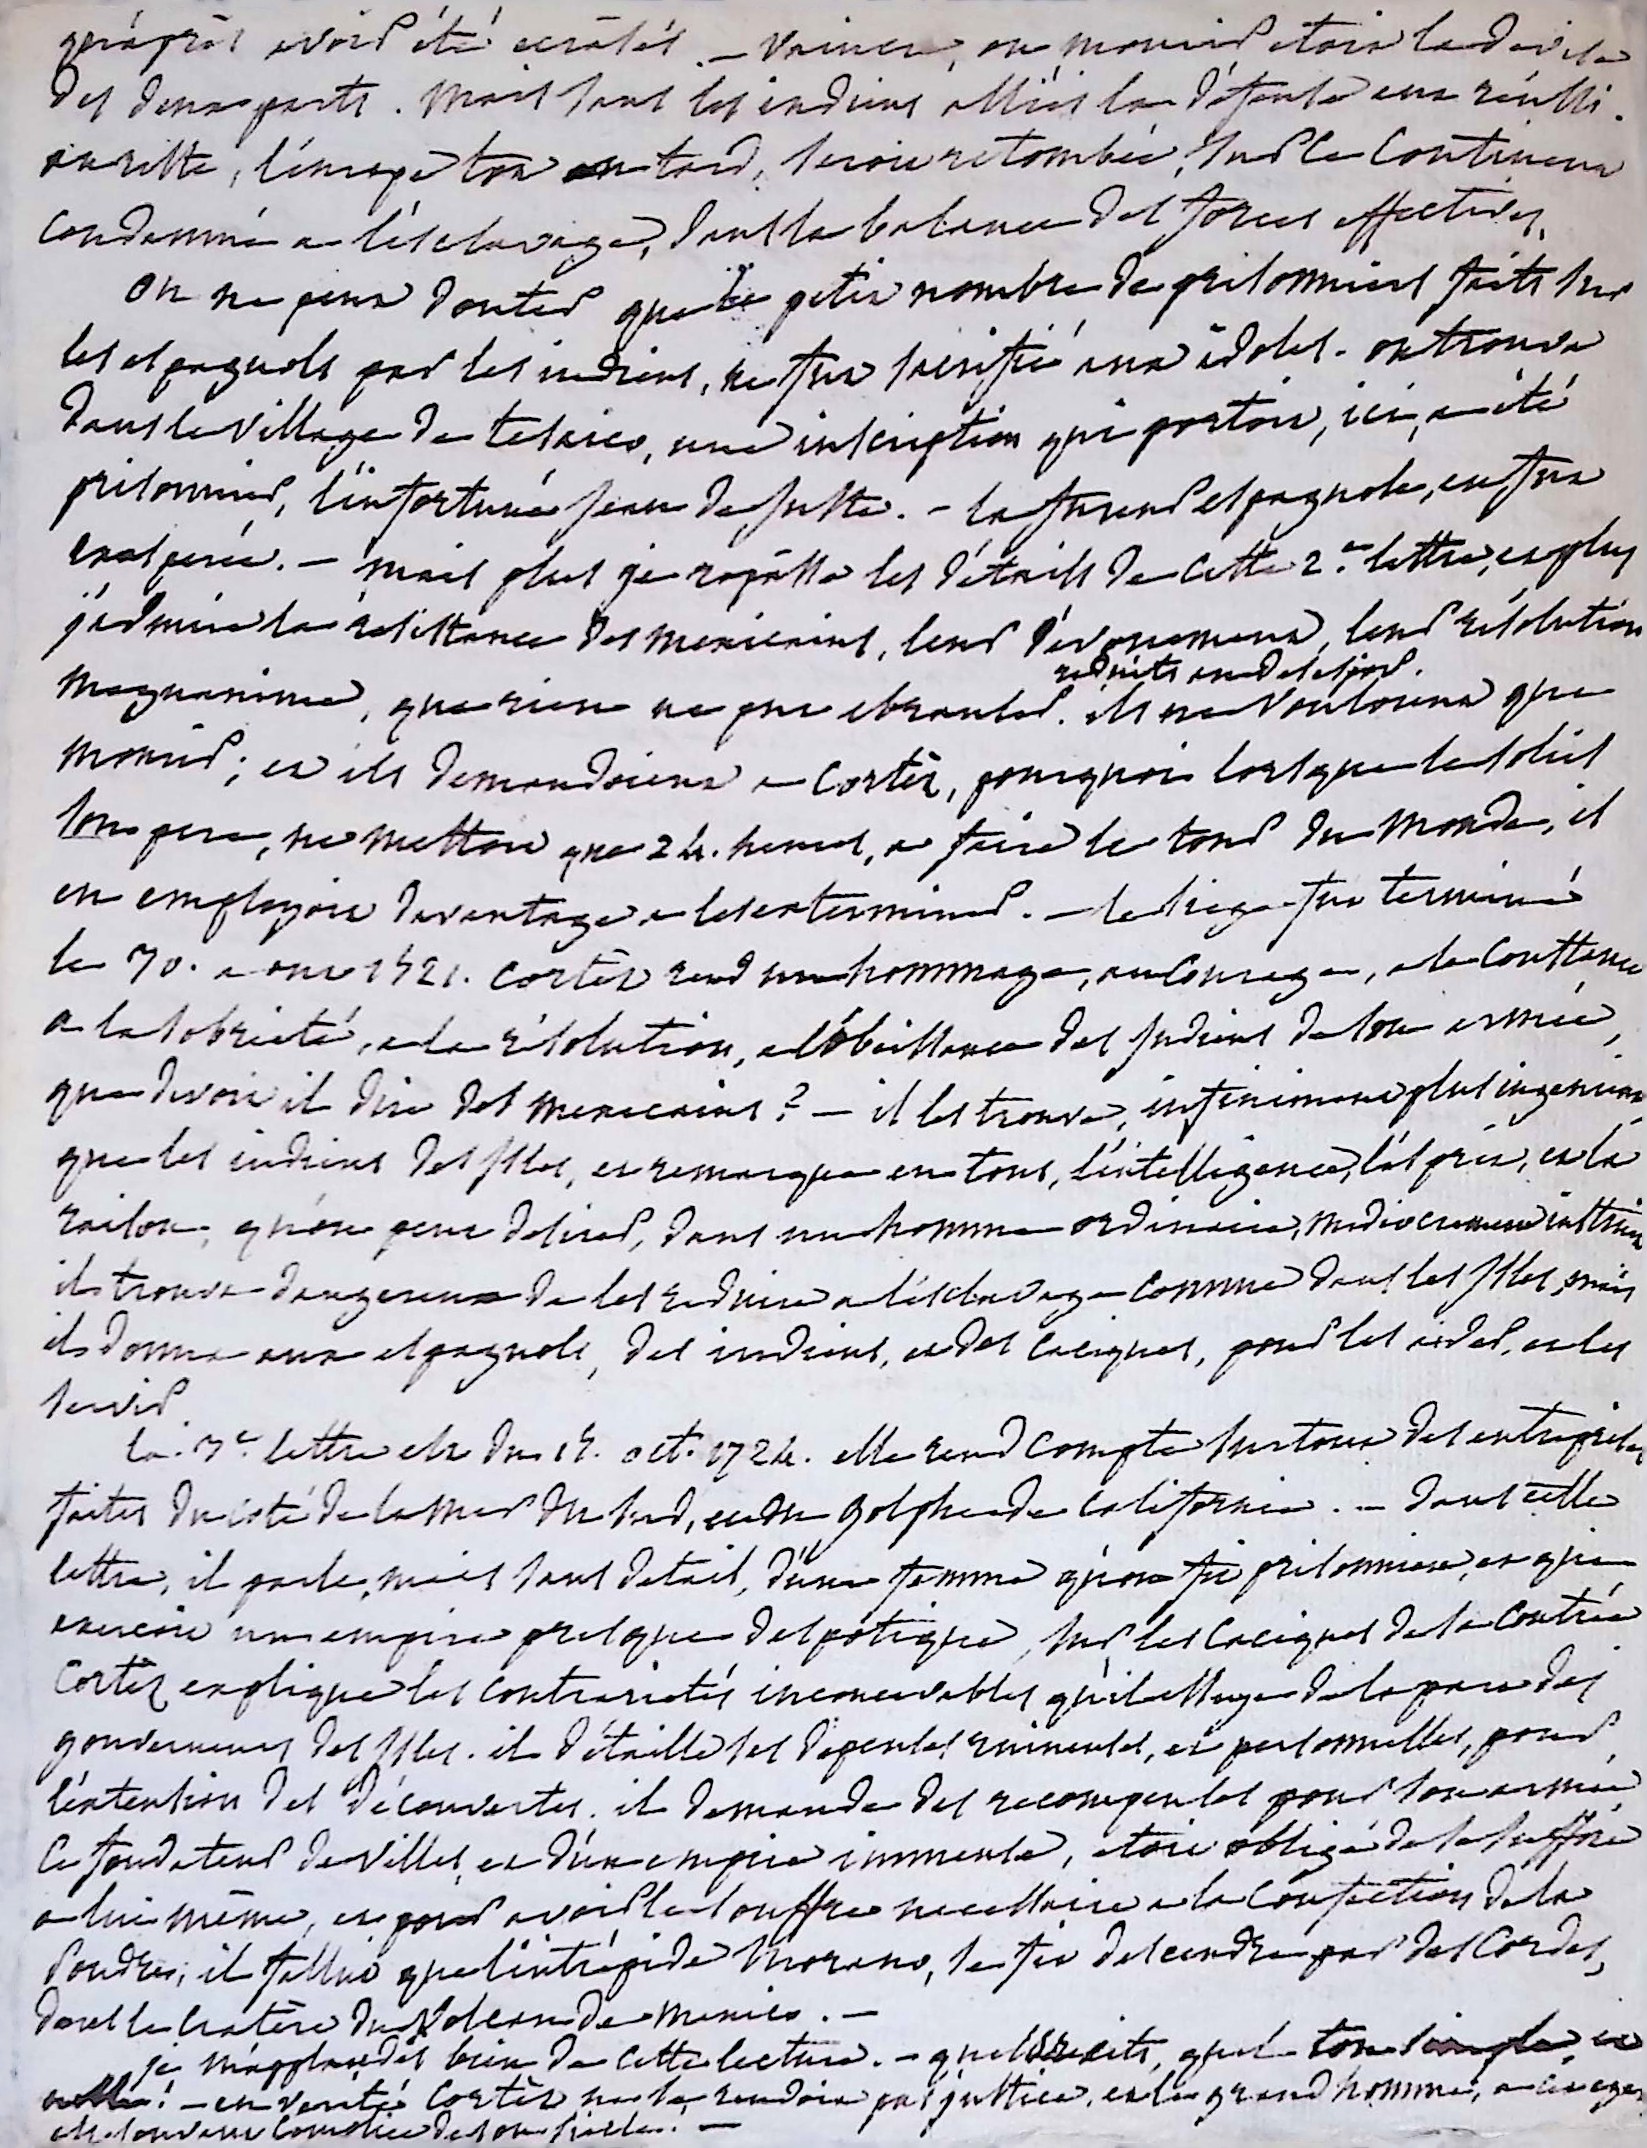 qu'après avoir été écrasés. – vaincre, ou mourir etoit la devise
des deux parts. mais sans les indiens alliés la défense eut réussi.
ensuite, l'énergie tot ou tard, seroit retombée, sur le continent
condamné a l'ésclavage, dans la balance des forces effectives.
on ne peut douter que le petit nombre de prisonniers faits sur
les espagnols par les indiens, ne fut sacrifié aux idoles. on trouva
dans le village de tesaico, une inscription qui portoit, ici, a été
prisonnier, l'infortuné jean de juste. – la fureur espagnole, en fut
exasperée. – mais plus je repasse les détails de cette 2.e lettre, et plus
j'admire la résistance des mexicains, leur dévouement, leur résolution
magnanime, que rien ne put ebranler. réduits au desespoir. ils ne vouloient que
mourir; et ils demandoient a Cortèz, pourquoi lorsque le soleil
son pere, ne mettoit que 24. heures, a faire le tour du monde, il
en employoit davantage a les exterminer. – le siege fut terminé
le 30. aout 1521. Cortèz rend un hommage, au courage, a la constance
a la sobrieté, a la résolution, a l'obeissance des indiens de son armée,
que devoit il dire des mexicains? – il les trouve, infiniment plus ingenieux
que les indiens des isles, et remarque en tous, l'intelligence, l'ésprit, et la
raison, qu'on peut desirer, dans un homme ordinaire, mediocrement instruit
il trouve dangereux de les reduire a l'ésclavage comme dans les isles, mais
il donne aux espagnols, des indiens, et des caciques, pour les aider, et les
servir.
la 3.e lettre est du 15. oct. 1724. elle rend compte surtout des entreprises
faites du coté de la mer du sud, et du golphe de californie. – dans cette
lettre, il parle, mais sans detail, d'une femme qu'on fit prisonniere, et qui
exercoit un empire presque despotique, sur les caciques de la contrée
Cortèz explique les contrariétés inconcevables qu'il essuye de la part des
gouverneurs des isles. il détaille ses depenses ruineuses, et personnelles, pour
l'éxtention des découvertes. il demande des recompenses pour son armée
Ce fondateur de villes, et d'un empire immense, etoit obligé de se suffire
a lui même, et pour avoir le souffre necessaire a la confection de la
poudre, il fallut que l'intrépide Morano, se fit descendre par des cordes,
dans le cratère du volcan de mexico. –
je m'applaudis bien de cette lecture. – quels récits, quel ton simple, et
noble! – en verité Cortèz ne se rendoit pas justice, et le grand homme, a ces
est souvent